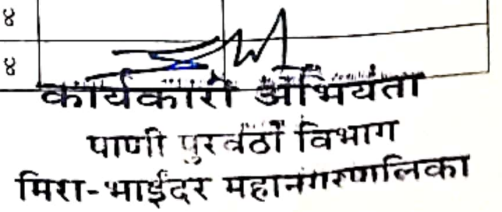 ४
४
कार्यकारी अभियंता
पाणी पुरवठा विभाग
मिरा-भाईंदर महानगरपालिका